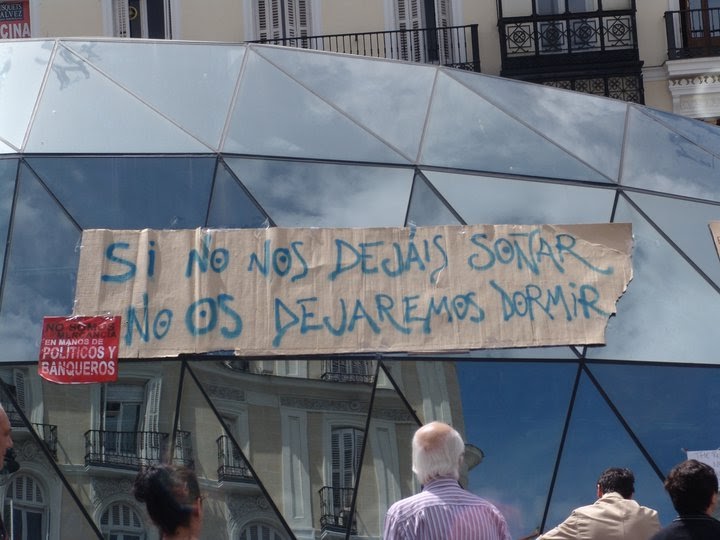 SI NO NOS DEJÁIS SOÑAR
NO OS DEJAREMOS DORMIR
NO SOMOS
MERCANCIA
EN MANOS DE
POLITICOS Y
BANQUEROS
CINA